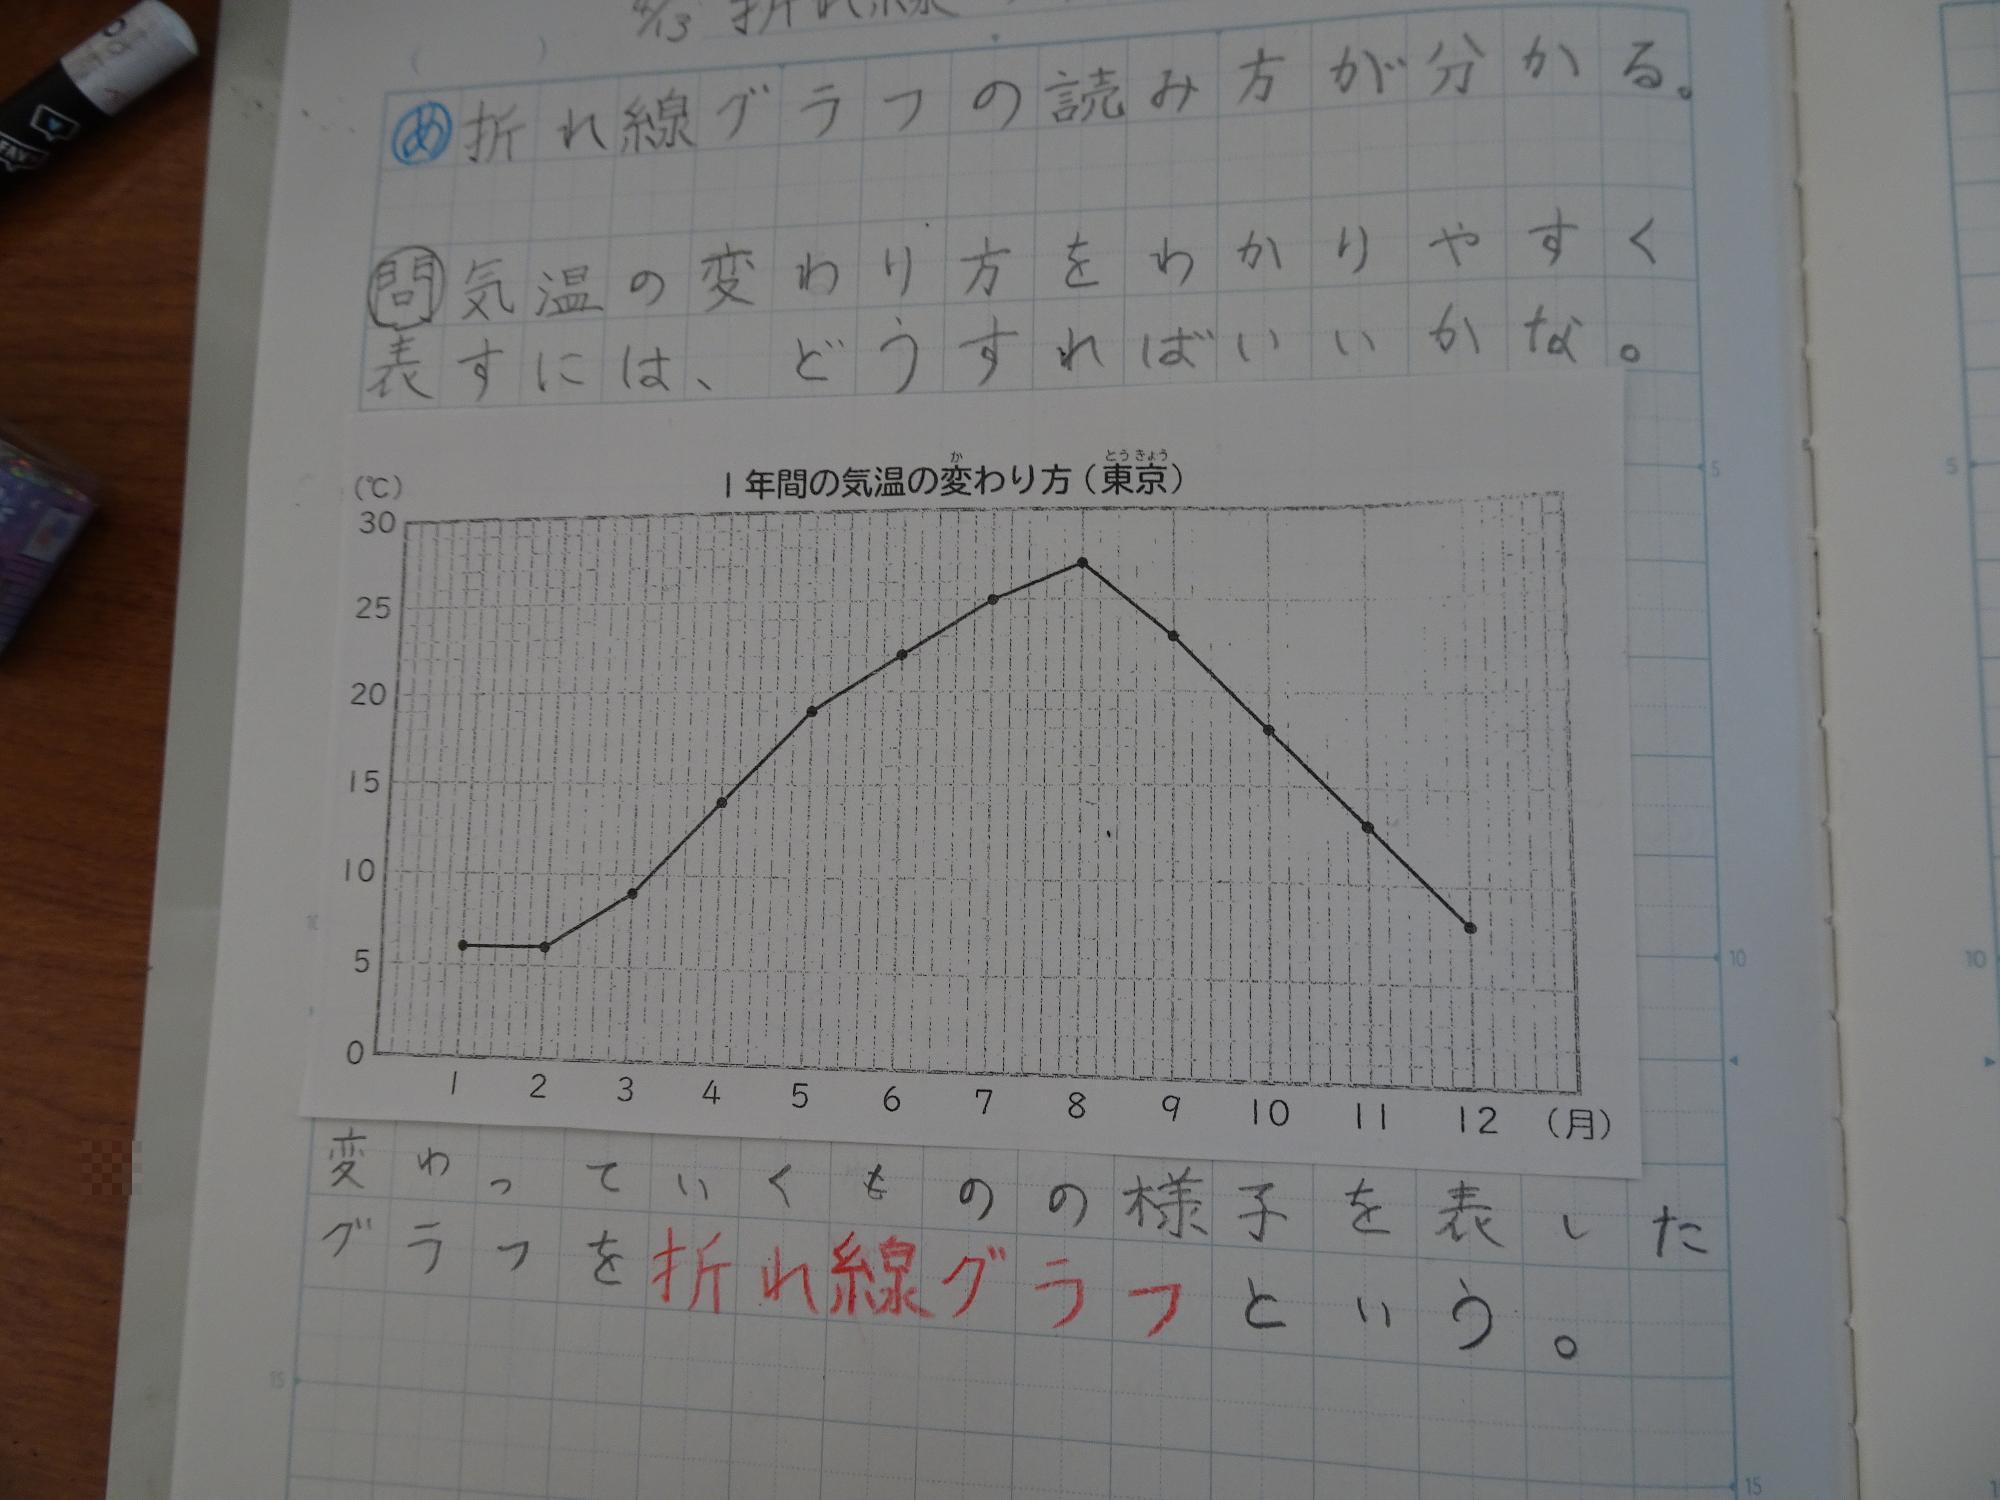 4/13 折れ線
( )
め 折れ線グラフの読み方が分かる。
問 気温の変わり方をわかりやすく
表すには、どうすればいいかな。
1年間の気温の変わり方(東京)
か
とうきょう
(℃)
30
25
20
15
10
5
0
1 2 3 4 5 6 7 8 9 10 11 12 (月)
変わっていくものの様子を表した
グラフを折れ線グラフという。
5
10
15
5
10
15